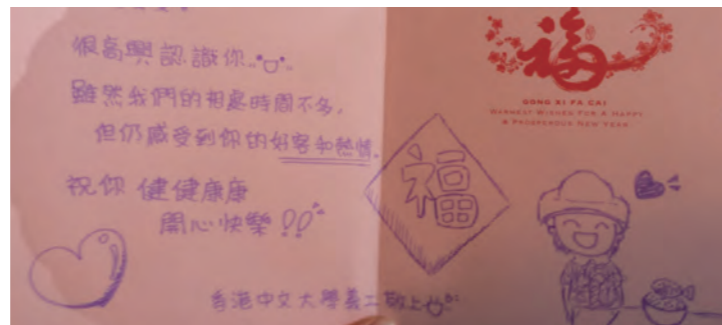 很高興認識你
雖然我們的相處時間不多，
但仍感受到你的好客和熱情。
祝你 健健康康
開心快樂!!
香港中文大學義工敬上
福
福
GONG XI FA CAI
WARMEST WISHES FOR A HAPPY
& PROSPEROUS NEW YEAR